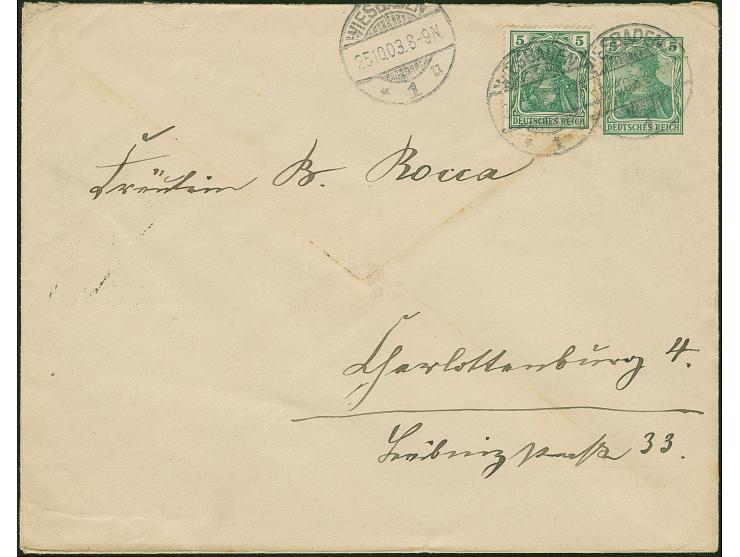 WIESBADEN
25.10.03.8-9N.
* 1 u
5 5
DEUTSCHES REICH
WIESBADEN
* 1
5 5
DEUTSCHES REICH
WIESBADEN
Fräulein B. Rocca
Charlottenburg 4.
Leibnizstraße 33.